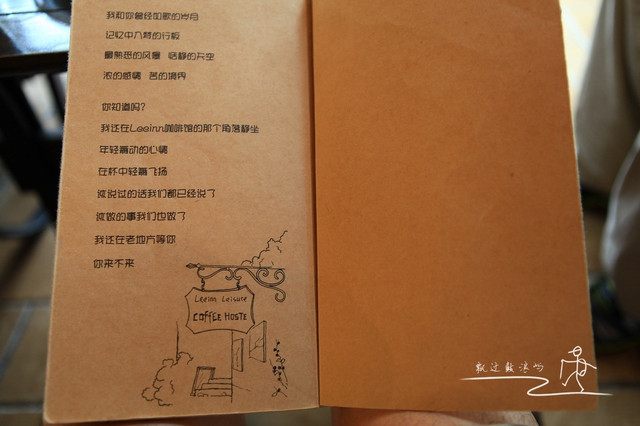 我和你曾经如歌的岁月
记忆中入梦的行板
最熟悉的风景 恬静的天空
浓的感情 苦的境界
你知道吗?
我还在Leeinn咖啡馆的那个角落静坐
年轻着动的心情
在杯中轻舞飞扬
该说过的话我们都已经说了
该做的事我们也做了
我还在老地方等你
你来不来
Leeinn Leisure
COFFEE HOSTE